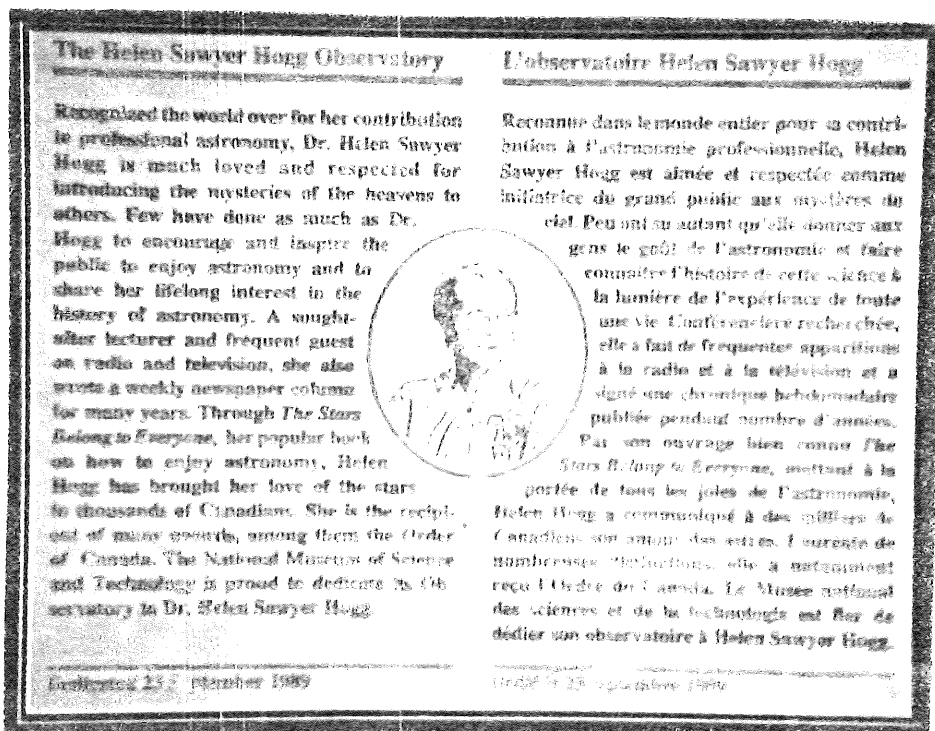 The Helen Sawyer Hogg Observatory
Recognized the world over for her contribution
to professional astronomy, Dr. Helen Sawyer
Hogg is much loved and respected for
introducing the mysteries of the heavens to
others. Few have done as much as Dr.
Hogg to encourage and inspire the
public to enjoy astronomy and to
share her lifelong interest in the
history of astronomy. A sought-
after lecturer and frequent guest
on radio and television, she also
wrote a weekly newspaper column
for many years. Through The Stars
Belong to Everyone, her popular book
on how to enjoy astronomy, Helen
Hogg has brought her love of the stars
to thousands of Canadians. She is the recipi-
ent of many awards, among them the Order
of Canada. The National Museum of Science
and Technology is proud to dedicate its Ob
servatory to Dr. Helen Sawyer Hogg
Dedicated 23 September 1989
L'observatoire Helen Sawyer Hogg
Reconnue dans le monde entier pour sa contri-
bution à l'astronomie professionnelle, Helen
Sawyer Hogg est aimée et respectée comme
initiatrice du grand public aux mystères du
ciel. Peu ont su autant qu'elle donner aux
gens le goût de l'astronomie et faire
connaître l'histoire de cette science à
la lumière de l'expérience de toute
une vie. Conférencière recherchée,
elle a fait de fréquentes apparitions
à la radio et à la télévision et a
signé une chronique hebdomadaire
publiée pendant nombre d'années.
Par son ouvrage bien connu The
Stars Belong to Everyone, mettant à la
portée de tous les joies de l'astronomie,
Helen Hogg a communiqué à des milliers de
Canadiens son amour des astres. Lauréate de
nombreuses distinctions, elle a notamment
reçu l'Ordre du Canada. Le Musée national
des sciences et de la technologie est fier de
dédier son observatoire à Helen Sawyer Hogg.
23 septembre 1989